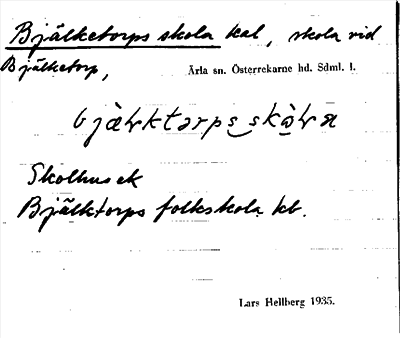 Bjälketorps skola kal, skola vid
Bjälketorp, Ärla sn. Österrekarne hd. Sdml. l.
Skolhus ek
Bjälktorps folkskola kb.
Lars Hellberg 1935.